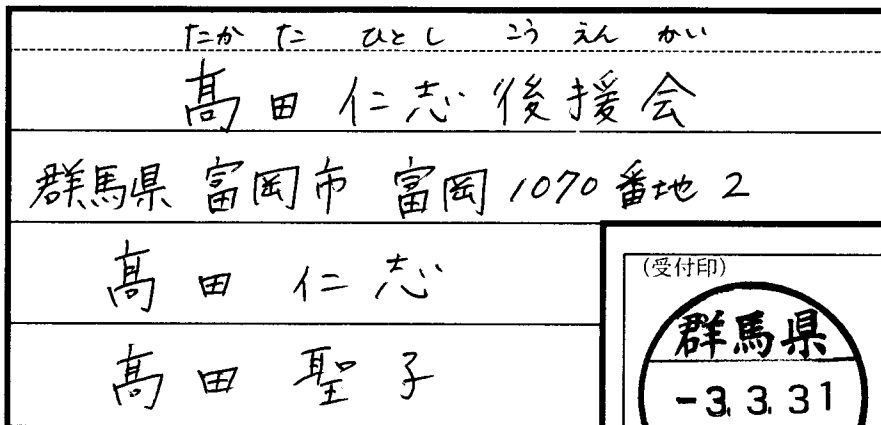 たかた ひとし こうえんかい
髙田仁志後援会
群馬県 富岡市 富岡1070番地2
髙田 仁志
髙田 聖子
(受付印)
群馬県
-3.3.31